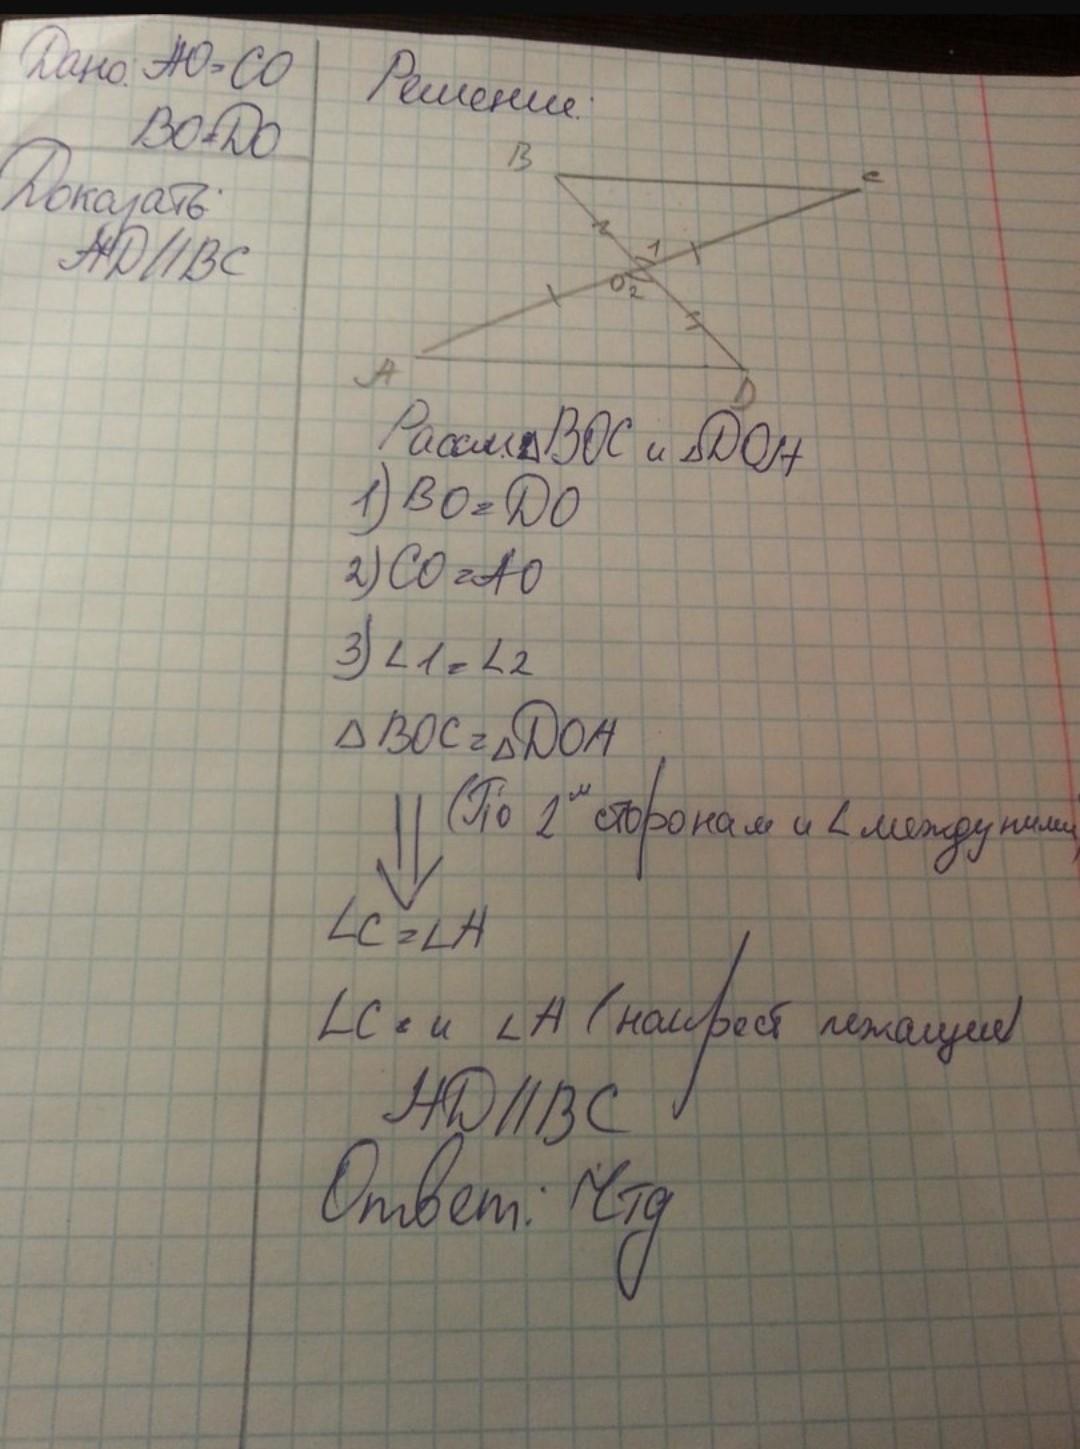 Дано: АО=СО
ВО=DО
Доказать:
AD//BC
Решение:
B
C
1
O
2
A
D
Рассм. △BOC и △DOA
1) BO=DO
2) CO=AO
3) ∠1=∠2
△BOC=△DOA
(По 2м сторонам и ∠ между ними)
∠C=∠A
∠C = и ∠A (накрест лежащие)
AD//BC
Ответ: Чтд